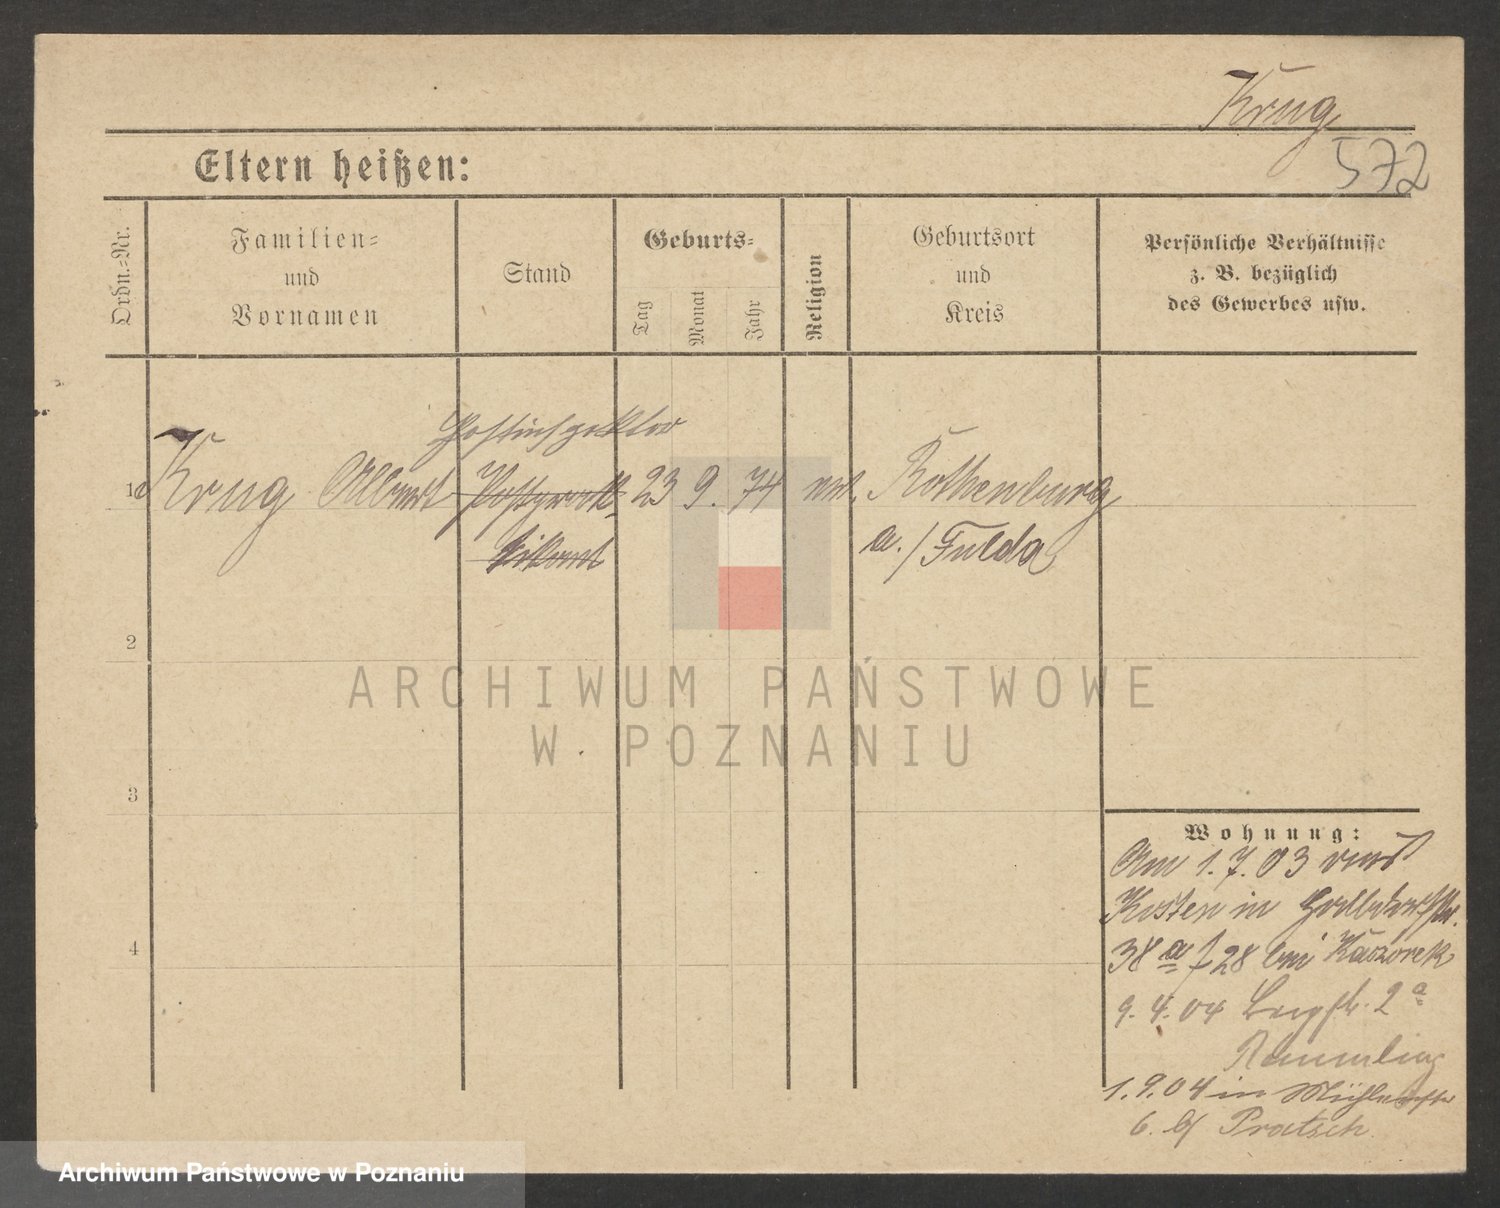 Krug
572
Eltern heißen:
Ordn.-Nr.
Familien-
und
Vornamen
Stand
Geburts-
Tag
Monat
Jahr
Religion
Geburtsort
und
Kreis
Persönliche Verhältnisse
z. B. bezüglich
des Gewerbes usw.
Postinspektor
1 Krug Albert Postprak- 23 9. 74 Rothenburg
tikant a./Fulda
2
3
4
Wohnung:
Am 1.7.03 aus
Kosten in
38a /28 bei Kaszorek
9.4.04 Bergstr. 2a
1.9.04 in Mühlenstr
6. b/ Pratsch
ARCHIWUM PAŃSTWOWE
W POZNANIU
Archiwum Państwowe w Poznaniu